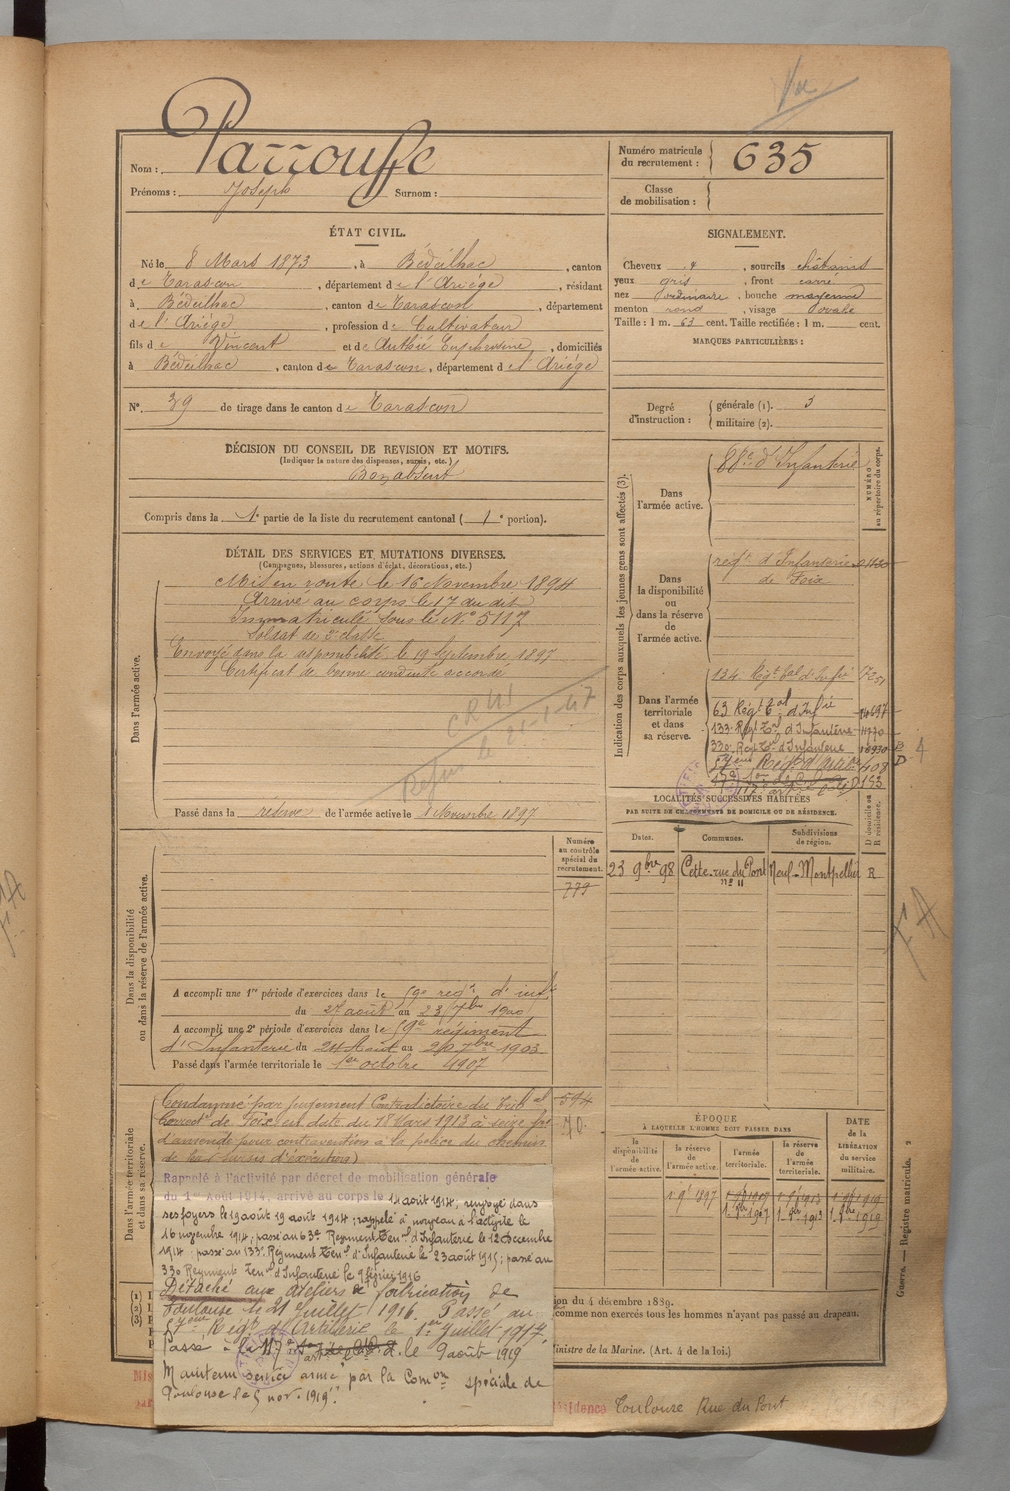 Vu
Nom : Parrouffe
Prénoms : Joseph Surnom :
Numéro matricule du recrutement : 635
Classe de mobilisation :
ÉTAT CIVIL.
Né le 8 Mars 1873, à Bédeilhac, canton
de Tarascon, département de l'Ariége, résidant
à Bédeilhac, canton de Tarascon, département
de l'Ariége, profession de Cultivateur
fils de Vincent et de Authié Euphrosine, domiciliés
à Bédeilhac, canton de Tarascon, département de l'Ariége
N° 39 de tirage dans le canton de Tarascon
SIGNALEMENT.
Cheveux, sourcils châtains
yeux gris, front carré
nez ordinaire, bouche moyenne
menton rond, visage ovale
Taille : 1 m. 63 cent. Taille rectifiée : 1 m. cent.
MARQUES PARTICULIÈRES :
Degré d'instruction : générale (1). 3
militaire (2).
DÉCISION DU CONSEIL DE REVISION ET MOTIFS.
(Indiquer la nature des dispenses, sursis, etc.)
Bon absent
Compris dans la 1e partie de la liste du recrutement cantonal (1e portion).
DÉTAIL DES SERVICES ET MUTATIONS DIVERSES.
(Campagnes, blessures, actions d'éclat, décorations, etc.)
Dans l'armée active.
Mis en route le 16 Novembre 1894
Arrivé au corps le 17 du dit
Immatriculé sous le N° 5117
Soldat de 2e classe
Envoyé dans la disponibilité le 19 Septembre 1897
Certificat de bonne conduite accordé
Passé dans la réserve de l'armée active le 1 Novembre 1897
Indication des corps auxquels les jeunes gens sont affectés (3).
NUMÉRO au répertoire du corps.
Dans l'armée active.
88e d'Infanterie
Dans la disponibilité ou dans la réserve de l'armée active.
régt d'Infanterie
de Foix
Dans l'armée territoriale et dans sa réserve.
134 Régt tal d'Infie
63 Régt tal d'Infie
133 Régt Ter d'Infanterie
330 Régt Ter d'Infanterie
57ème Régt d'Artie
LOCALITÉS SUCCESSIVES HABITÉES
PAR SUITE DE CHANGEMENTS DE DOMICILE OU DE RÉSIDENCE.
Dates. Communes. Subdivisions de région. D domicile ou R résidence.
23 9bre 98 Cette rue du Pont Neuf - Montpellier R
n° 11
Dans la disponibilité ou dans la réserve de l'armée active.
Numéro au contrôle spécial du recrutement.
799
A accompli une 1re période d'exercices dans le 59e régt d'inf
du 27 août au 23 7bre 1900
A accompli une 2e période d'exercices dans le 59e régiment
d'Infanterie du 24 Août au 20 7bre 1903
Passé dans l'armée territoriale le 1er octobre 1907
Dans l'armée territoriale et dans sa réserve.
Condamné par jugement Contradictoire du Tribal 594
Correctl de Foix en date du 18 Mars 1913 à seize frs 70
d'amende pour contravention à la police du chemins
Rappelé à l'activité par décret de mobilisation générale
du 1er Août 1914, arrivé au corps le 14 août 1914, renvoyé dans
ses foyers le 19 août 19 août 1914 ; rappelé à nouveau à l'activité le
16 novembre 1914 ; passé au 63e Régiment Terral d'Infanterie le 12 Décembre
1914 ; passé au 133e Régiment Terral d'Infanterie le 23 août 1915 ; passé au
330 Régiment Terral d'Infanterie le 9 février 1916
Détaché aux ateliers de fabrication de
Toulouse le 21 Juillet 1916. Passé au
57ème Régt d'Artillerie le 1er Juillet 1917.
Passé à la 17e le 9 août 1919
Maintenu service armé par la Comon spéciale de
Toulouse le 5 nov. 1919.
ÉPOQUE
À LAQUELLE L'HOMME DOIT PASSER DANS
la disponibilité de l'armée active. la réserve de l'armée active. l'armée territoriale. la réserve de l'armée territoriale.
DATE de la LIBÉRATION du service militaire.
Guerre. — Registre matricule. 2
du 4 décembre 1889.
comme non exercés tous les hommes n'ayant pas passé au drapeau.
Ministre de la Marine. (Art. 4 de la loi.)
Toulouse Rue du Pont